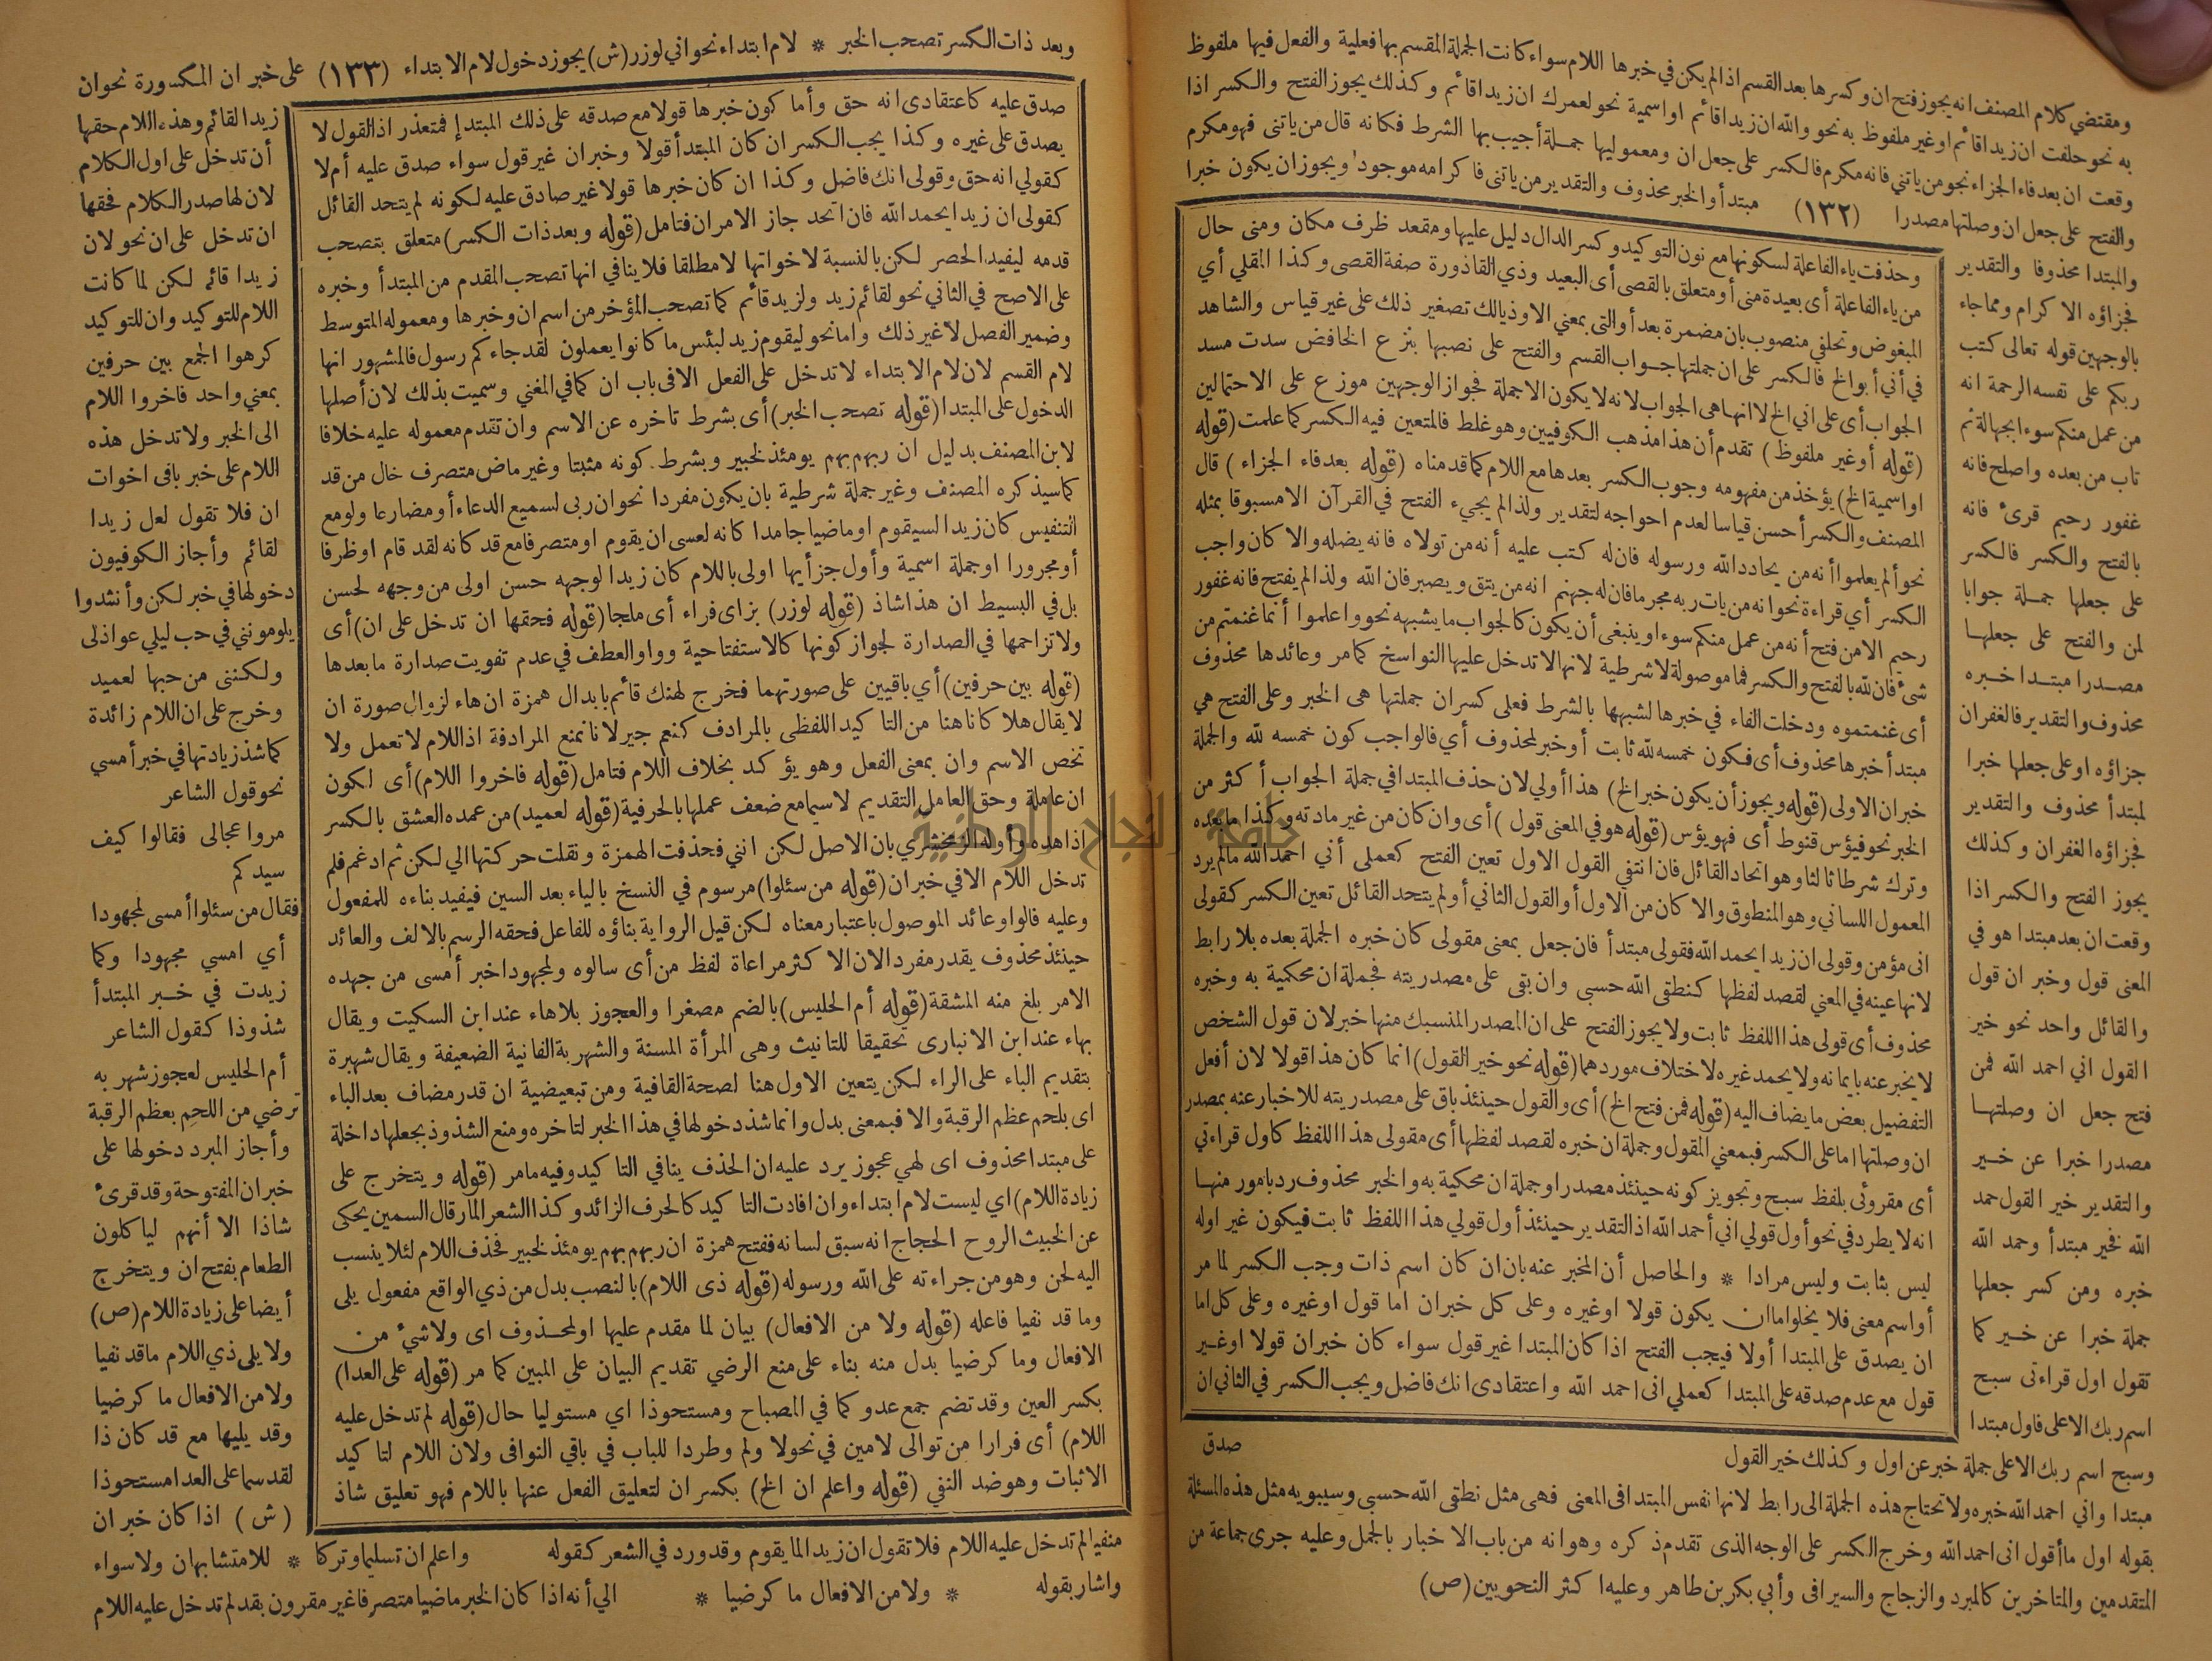 ومقتضى كلام المصنف انه يجوز فتح ان وكسرها بعد القسم اذا لم يكن في خبرها اللام سواء كانت الجملة المقسم بها فعلية والفعل فيها ملفوظ
به نحو حلفت ان زيدا قائم أو غير ملفوظ به نحو والله ان زيدا قائم او اسمية نحو لعمرك ان زيدا قائم وكذلك يجوز الفتح والكسر اذا
وقعت ان بعد فاء الجزاء نحو من يأتني فانه مكرم فالكسر على جعل ان ومعموليها جملة أجيب بها الشرط فكانه قال من ياتنى فهو مكرم
والفتح على جعل ان وصلتها مصدرا (١٣٢) مبتدأ والخبر محذوف والتقدير من ياتنى فاكرامه موجود ويجوز ان يكون خبرا
والمبتدا محذوفا والتقدير
فجزاؤه الا كرام ومما جاء
بالوجهين قوله تعالى كتب
ربكم على نفسه الرحمة انه
من عمل منكم سوءا بجهالة ثم
تاب من بعده واصلح فانه
غفور رحيم قرئ فانه
بالفتح والكسر فالكسر
على جعلها جملة جوابا
لمن والفتح على جعلها
مصدرا مبتدا خبره
محذوف والتقدير فالغفران
جزاؤه او على جعلها خبرا
لمبتدأ محذوف والتقدير
فجزاؤه الغفران وكذلك
يجوز الفتح والكسر اذا
وقعت ان بعد مبتدا هو في
المعنى قول وخبر ان قول
والقائل واحد نحو خير
القول اني احمد الله فمن
فتح جعل ان وصلتها
مصدرا خبرا عن خير
والتقدير خير القول حمد
الله فخير مبتدأ وحمد الله
خبره ومن كسر جعلها
جملة خبرا عن خير كما
تقول اول قراءتى سبح
اسم ربك الاعلى فاول مبتدا
وسبح اسم ربك الاعلى جملة خبر عن اول وكذلك خير القول
مبتدا واني احمد الله خبره ولا تحتاج هذه الجملة الى رابط لانها نفس المبتدا فى المعنى فهى مثل نطقى الله حسبى وسيبويه مثل هذه المسئلة
بقوله اول ما أقول انى احمد الله وخرج الكسر على الوجه الذى تقدم ذكره وهو انه من باب الاخبار بالجمل وعليه جرى جماعة من
المتقدمين والمتاخرين كالمبرد والزجاج والسيرافى وأبي بكر بن طاهر وعليه اكثر النحويين (ص)
وحذفت ياء الفاعلة لسكونها مع نون التوكيد وكسر الدال دليل عليها ومقعد ظرف مكان ومنى حال
من ياء الفاعلة أى بعيدة منى أو متعلق بالقصى أى البعيد وذي القاذورة صفة القصى وكذا المقلي أي
المبغوض وتحلفي منصوب بان مضمرة بعد أو التى بمعني الا وذيالك تصغير ذلك على غير قياس والشاهد
في أني أبو الخ فالكسر على ان جملتها جواب القسم والفتح على نصبها بنزع الخافض سدت مسد
الجواب أى على اني الخ لا انها هى الجواب لانه لا يكون الا جملة فجواز الوجهين موزع على الاحتمالين
(قوله أو غير ملفوظ) تقدم أن هذا مذهب الكوفيين وهو غلط فالمتعين فيه الكسر كما علمت (قوله
او اسمية الخ) يؤخذ من مفهومه وجوب الكسر بعدها مع اللام كما قدمناه (قوله بعد فاء الجزاء) قال
المصنف والكسر أحسن قياسا لعدم احواجه لتقدير ولذا لم يجىء الفتح في القرآن الا مسبوقا بمثله
نحو ألم يعلموا أنه من يحادد الله ورسوله فان له كتب عليه أنه من تولاه فانه يضله والا كان واجب
الكسر أي قراءة نحو انه من يات ربه مجرما فان له جهنم انه من يتق ويصبر فان الله ولذا لم يفتح فانه غفور
رحيم الا من فتح أنه من عمل منكم سوءا وينبغى أن يكون كالجواب ما يشبهه نحو واعلموا أنما غنمتم من
شىء فان لله بالفتح والكسر فما موصولة لا شرطية لانها لا تدخل عليها النواسخ كما مر وعائدها محذوف
أى غنمتموه ودخلت الفاء في خبرها لشبهها بالشرط فعلى كسر ان جملتها هى الخبر وعلى الفتح هي
مبتدأ خبرها محذوف أى فكون خمسه لله ثابت أو خبر لمحذوف أي فالواجب كون خمسه لله والجملة
خبر ان الاولى (قوله ويجوز أن يكون خبر الخ) هذا أولي لان حذف المبتدا في جملة الجواب أكثر من
الخبر نحو فيؤس قنوط أى فهو يؤس (قوله هو في المعنى قول) أى وان كان من غير مادته وكذا ما بعده
وترك شرطا ثالثا وهو اتحاد القائل فان انتفي القول الاول تعين الفتح كعملى أني احمد الله ما لم يرد
المعمول اللساني وهو المنطوق والا كان من الاول أو القول الثاني أو لم يتحد القائل تعين الكسر كقولى
انى مؤمن وقولى ان زيدا يحمد الله فقولى مبتدأ فان جعل بمعنى مقولى كان خبره الجملة بعده بلا رابط
لانها عينه في المعني لقصد لفظها كنطقى الله حسبى وان بقى على مصدريته فجملة ان محكية به وخبره
محذوف أى قولى هذا اللفظ ثابت ولا يجوز الفتح على ان المصدر المنسبك منها خبر لان قول الشخص
لا يخبر عنه بايمانه ولا يحمد غيره لاختلاف موردهما (قوله نحو خير القول) انما كان هذا قولا لان أفعل
التفضيل بعض ما يضاف اليه (قوله فمن فتح الخ) أى والقول حينئذ باق على مصدريته للاخبار عنه بمصدر
ان وصلتها اما على الكسر فبمعنى المقول وجملة ان خبره لقصد لفظها أى مقولى هذا اللفظ كاول قراءتي
أى مقروئى بلفظ سبح وتجويز كونه حينئذ مصدرا وجملة ان محكية به والخبر محذوف رد بامور منها
انه لا يطرد في نحو أول قولي اني أحمد الله اذ التقدير حينئذ أول قولي هذا اللفظ ثابت فيكون غير اوله
ليس بثابت وليس مرادا * والحاصل أن المخبر عنه بان ان كان اسم ذات وجب الكسر لما مر
أو اسم معنى فلا يخلو اما ان يكون قولا او غيره وعلى كل خبر ان اما قول او غيره وعلى كل اما
ان يصدق على المبتدا أولا فيجب الفتح اذا كان المبتدا غير قول سواء كان خبر ان قولا او غير
قول مع عدم صدقه على المبتدا كعملي انى احمد الله واعتقادى انك فاضل ويجب الكسر في الثاني ان
صدق
وبعد ذات الكسر تصحب الخبر * لام ابتداء نحو اني لوزر (ش) يجوز دخول لام الابتداء (١٣٣) على خبر ان المكسورة نحو ان
زيدا لقائم وهذه اللام حقها
أن تدخل على اول الكلام
لان لها صدر الكلام فحقها
ان تدخل على ان نحو لان
زيدا قائم لكن لما كانت
اللام للتوكيد وان للتوكيد
كرهوا الجمع بين حرفين
بمعني واحد فاخروا اللام
الى الخبر ولا تدخل هذه
اللام على خبر باقى اخوات
ان فلا تقول لعل زيدا
لقائم وأجاز الكوفيون
دخولها في خبر لكن وأنشدوا
يلومونني في حب ليلي عواذلى
ولكننى من حبها لعميد
وخرج على ان اللام زائدة
كما شذ زيادتها في خبر أمسي
نحو قول الشاعر
مروا عجالى فقالوا كيف
سيدكم
فقال من سئلوا أمسى لمجهودا
أي امسي مجهودا وكما
زيدت في خبر المبتدأ
شذوذا كقول الشاعر
أم الحليس لعجوز شهربه
ترضي من اللحم بعظم الرقبة
وأجاز المبرد دخولها على
خبر ان المفتوحة وقد قرئ
شاذا الا أنهم لياكلون
الطعام بفتح ان ويتخرج
أيضا على زيادة اللام (ص)
ولا يلى ذي اللام ما قد نفيا
ولا من الافعال ما كرضيا
وقد يليها مع قد كان ذا
لقد سما على العدا مستحوذا
(ش) اذا كان خبر ان
منفيا لم تدخل عليه اللام فلا تقول ان زيدا لما يقوم وقد ورد في الشعر كقوله واعلم ان تسليما وتركا * للامتشابهان ولا سواء
واشار بقوله * ولا من الافعال ما كرضيا * الي أنه اذا كان الخبر ماضيا متصرفا غير مقرون بقد لم تدخل عليه اللام
صدق عليه كاعتقادى انه حق وأما كون خبرها قولا مع صدقه على ذلك المبتدإ فمتعذر اذ القول لا
يصدق على غيره وكذا يجب الكسر ان كان المبتدأ قولا وخبر ان غير قول سواء صدق عليه أم لا
كقولي انه حق وقولى انك فاضل وكذا ان كان خبرها قولا غير صادق عليه لكونه لم يتحد القائل
كقولى ان زيدا يحمد الله فان اتحد جاز الامران فتامل (قوله وبعد ذات الكسر) متعلق بتصحب
قدمه ليفيد الحصر لكن بالنسبة لاخواتها لا مطلقا فلا ينافي انها تصحب المقدم من المبتدأ وخبره
على الاصح في الثاني نحو لقائم زيد ولزيد قائم كما تصحب المؤخر من اسم ان وخبرها ومعموله المتوسط
وضمير الفصل لا غير ذلك واما نحو ليقوم زيد لبئس ما كانوا يعملون لقد جاءكم رسول فالمشهور انها
لام القسم لان لام الابتداء لا تدخل على الفعل الا فى باب ان كما في المغني وسميت بذلك لان أصلها
الدخول على المبتدا (قوله تصحب الخبر) أى بشرط تاخره عن الاسم وان تقدم معموله عليه خلافا
لابن المصنف بدليل ان ربهم بهم يومئذ لخبير وبشرط كونه مثبتا وغير ماض متصرف خال من قد
كما سيذكره المصنف وغير جملة شرطية بان يكون مفردا نحو ان ربى لسميع الدعاء أو مضارعا ولو مع
التنفيس كان زيدا لسيقوم او ماضيا جامدا كانه لعسى ان يقوم او متصرفا مع قد كانه لقد قام او ظرفا
أو مجرورا او جملة اسمية وأول جزأيها اولى باللام كان زيدا لوجهه حسن اولى من وجهه لحسن
بل في البسيط ان هذا شاذ (قوله لوزر) بزاى فراء أى ملجا (قوله فحقها ان تدخل على ان) أى
ولا تزاحمها في الصدارة لجواز كونها كالاستفتاحية وواو العطف في عدم تفويت صدارة ما بعدها
(قوله بين حرفين) أي باقيين على صورتهما فخرج لهنك قائم بابدال همزة ان هاء لزوال صورة ان
لا يقال هلا كانا هنا من التاكيد اللفظى بالمرادف كنعم جير لانا نمنع المرادفة اذ اللام لا تعمل ولا
تخص الاسم وان بمعنى الفعل وهو يؤكد بخلاف اللام فتامل (قوله فاخروا اللام) أى لكون
ان عاملة وحق العامل التقديم لا سيما مع ضعف عملها بالحرفية (قوله لعميد) من عمده العشق بالكسر
اذا هده واوله الزمخشري بان الاصل لكن انني فحذفت الهمزة ونقلت حركتها الي لكن ثم ادغم فلم
تدخل اللام الا في خبر ان (قوله من سئلوا) مرسوم في النسخ بالياء بعد السين فيفيد بناءه للمفعول
وعليه فالواو عائد الموصول باعتبار معناه لكن قيل الرواية بناؤه للفاعل فحقه الرسم بالالف والعائد
حينئذ محذوف يقدر مفردا لان الاكثر مراعاة لفظ من أى سالوه ولمجهودا خبر أمسى من جهده
الامر بلغ منه المشقة (قوله أم الحليس) بالضم مصغرا والعجوز بلا هاء عند ابن السكيت ويقال
بهاء عند ابن الانبارى تحقيقا للتانيث وهى المرأة المسنة والشهربة الفانية الضعيفة ويقال شهبرة
بتقديم الباء على الراء لكن يتعين الاول هنا لصحة القافية ومن تبعيضية ان قدر مضاف بعد الباء
اى بلحم عظم الرقبة والا فبمعنى بدل وانما شذ دخولها في هذا الخبر لتاخره ومنع الشذوذ بجعلها داخلة
على مبتدا محذوف اى لهي عجوز يرد عليه ان الحذف ينافي التاكيد وفيه ما مر (قوله ويتخرج على
زيادة اللام) اي ليست لام ابتداء وان افادت التاكيد كالحرف الزائد وكذا الشعر المار قال السمين يحكى
عن الخبيث الروح الحجاج انه سبق لسانه ففتح همزة ان ربهم بهم يومئذ لخبير فحذف اللام لئلا ينسب
اليه لحن وهو من جراءته على الله ورسوله (قوله ذى اللام) بالنصب بدل من ذي الواقع مفعول يلى
وما قد نفيا فاعله (قوله ولا من الافعال) بيان لما مقدم عليها او لمحذوف اى ولا شىء من
الافعال وما كرضيا بدل منه بناء على منع الرضي تقديم البيان على المبين كما مر (قوله على العدا)
بكسر العين وقد تضم جمع عدو كما في المصباح ومستحوذا اي مستوليا حال (قوله لم تدخل عليه
اللام) أى فرارا من توالى لامين في نحو لا ولم وطردا للباب في باقي النوافى ولان اللام لتاكيد
الاثبات وهو ضد النفي (قوله واعلم ان الخ) بكسر ان لتعليق الفعل عنها باللام فهو تعليق شاذ
جامعة النجاح الوطنية